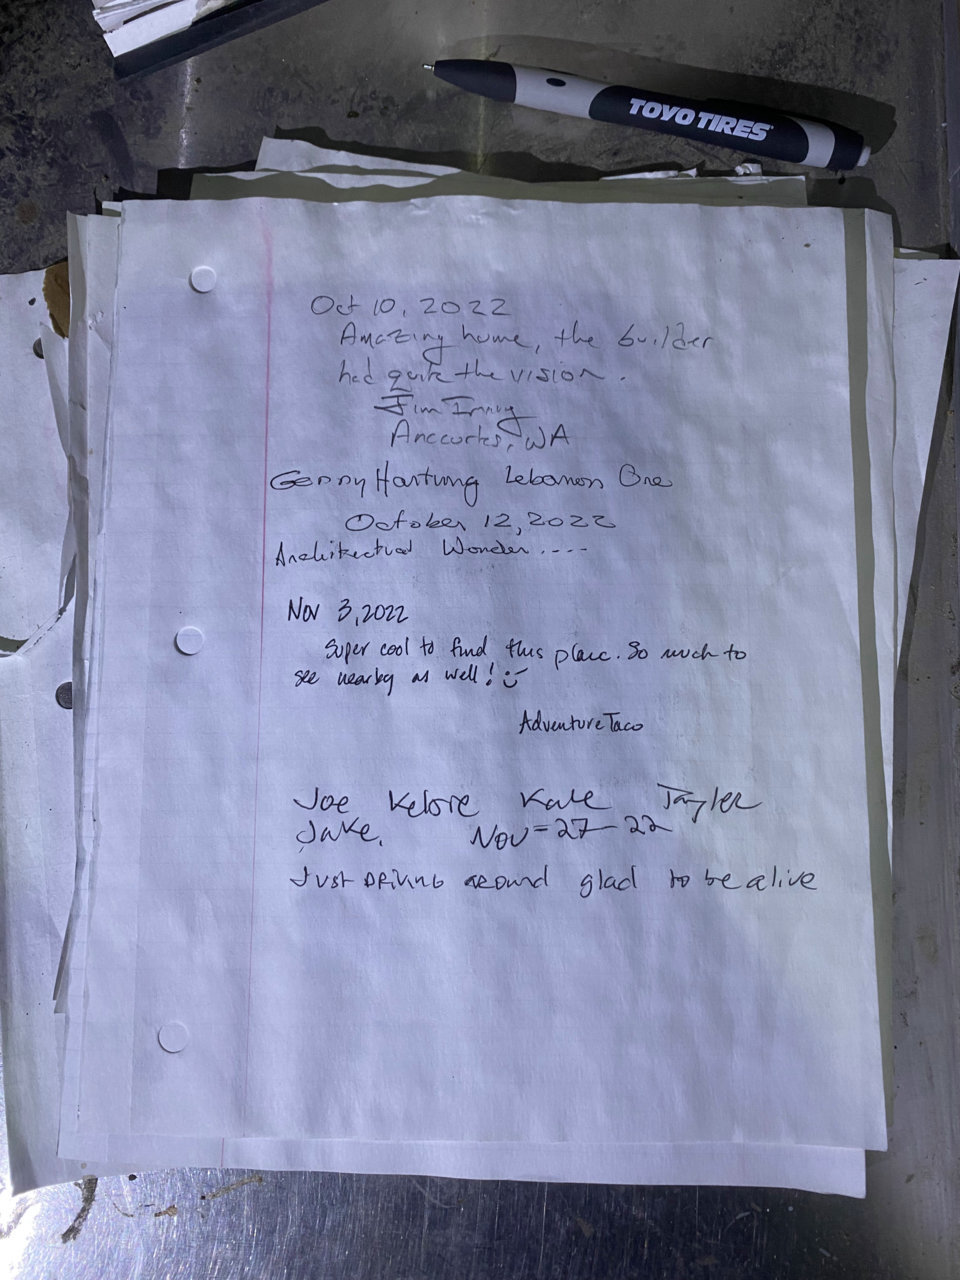 TOYO TIRES
Oct 10, 2022
Amazing home, the builder
had quite the vision.
Jim
WA
Gerry Hartung Lebanon Ore
October 12, 2022
Architectual Wonder....
Nov 3, 2022
Super cool to find this place. So much to
see nearby as well!
AdventureTaco
Joe Kale Tayler
Jake. Nov=27-22
Just DRiviNG around glad to be alive